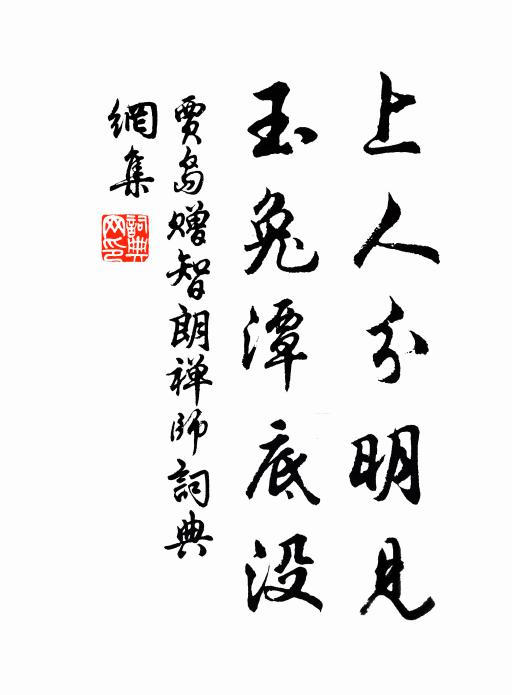 上人分明見
玉兔潭底没
賈島贈智朗禅师詞典
網集
詞典
网印